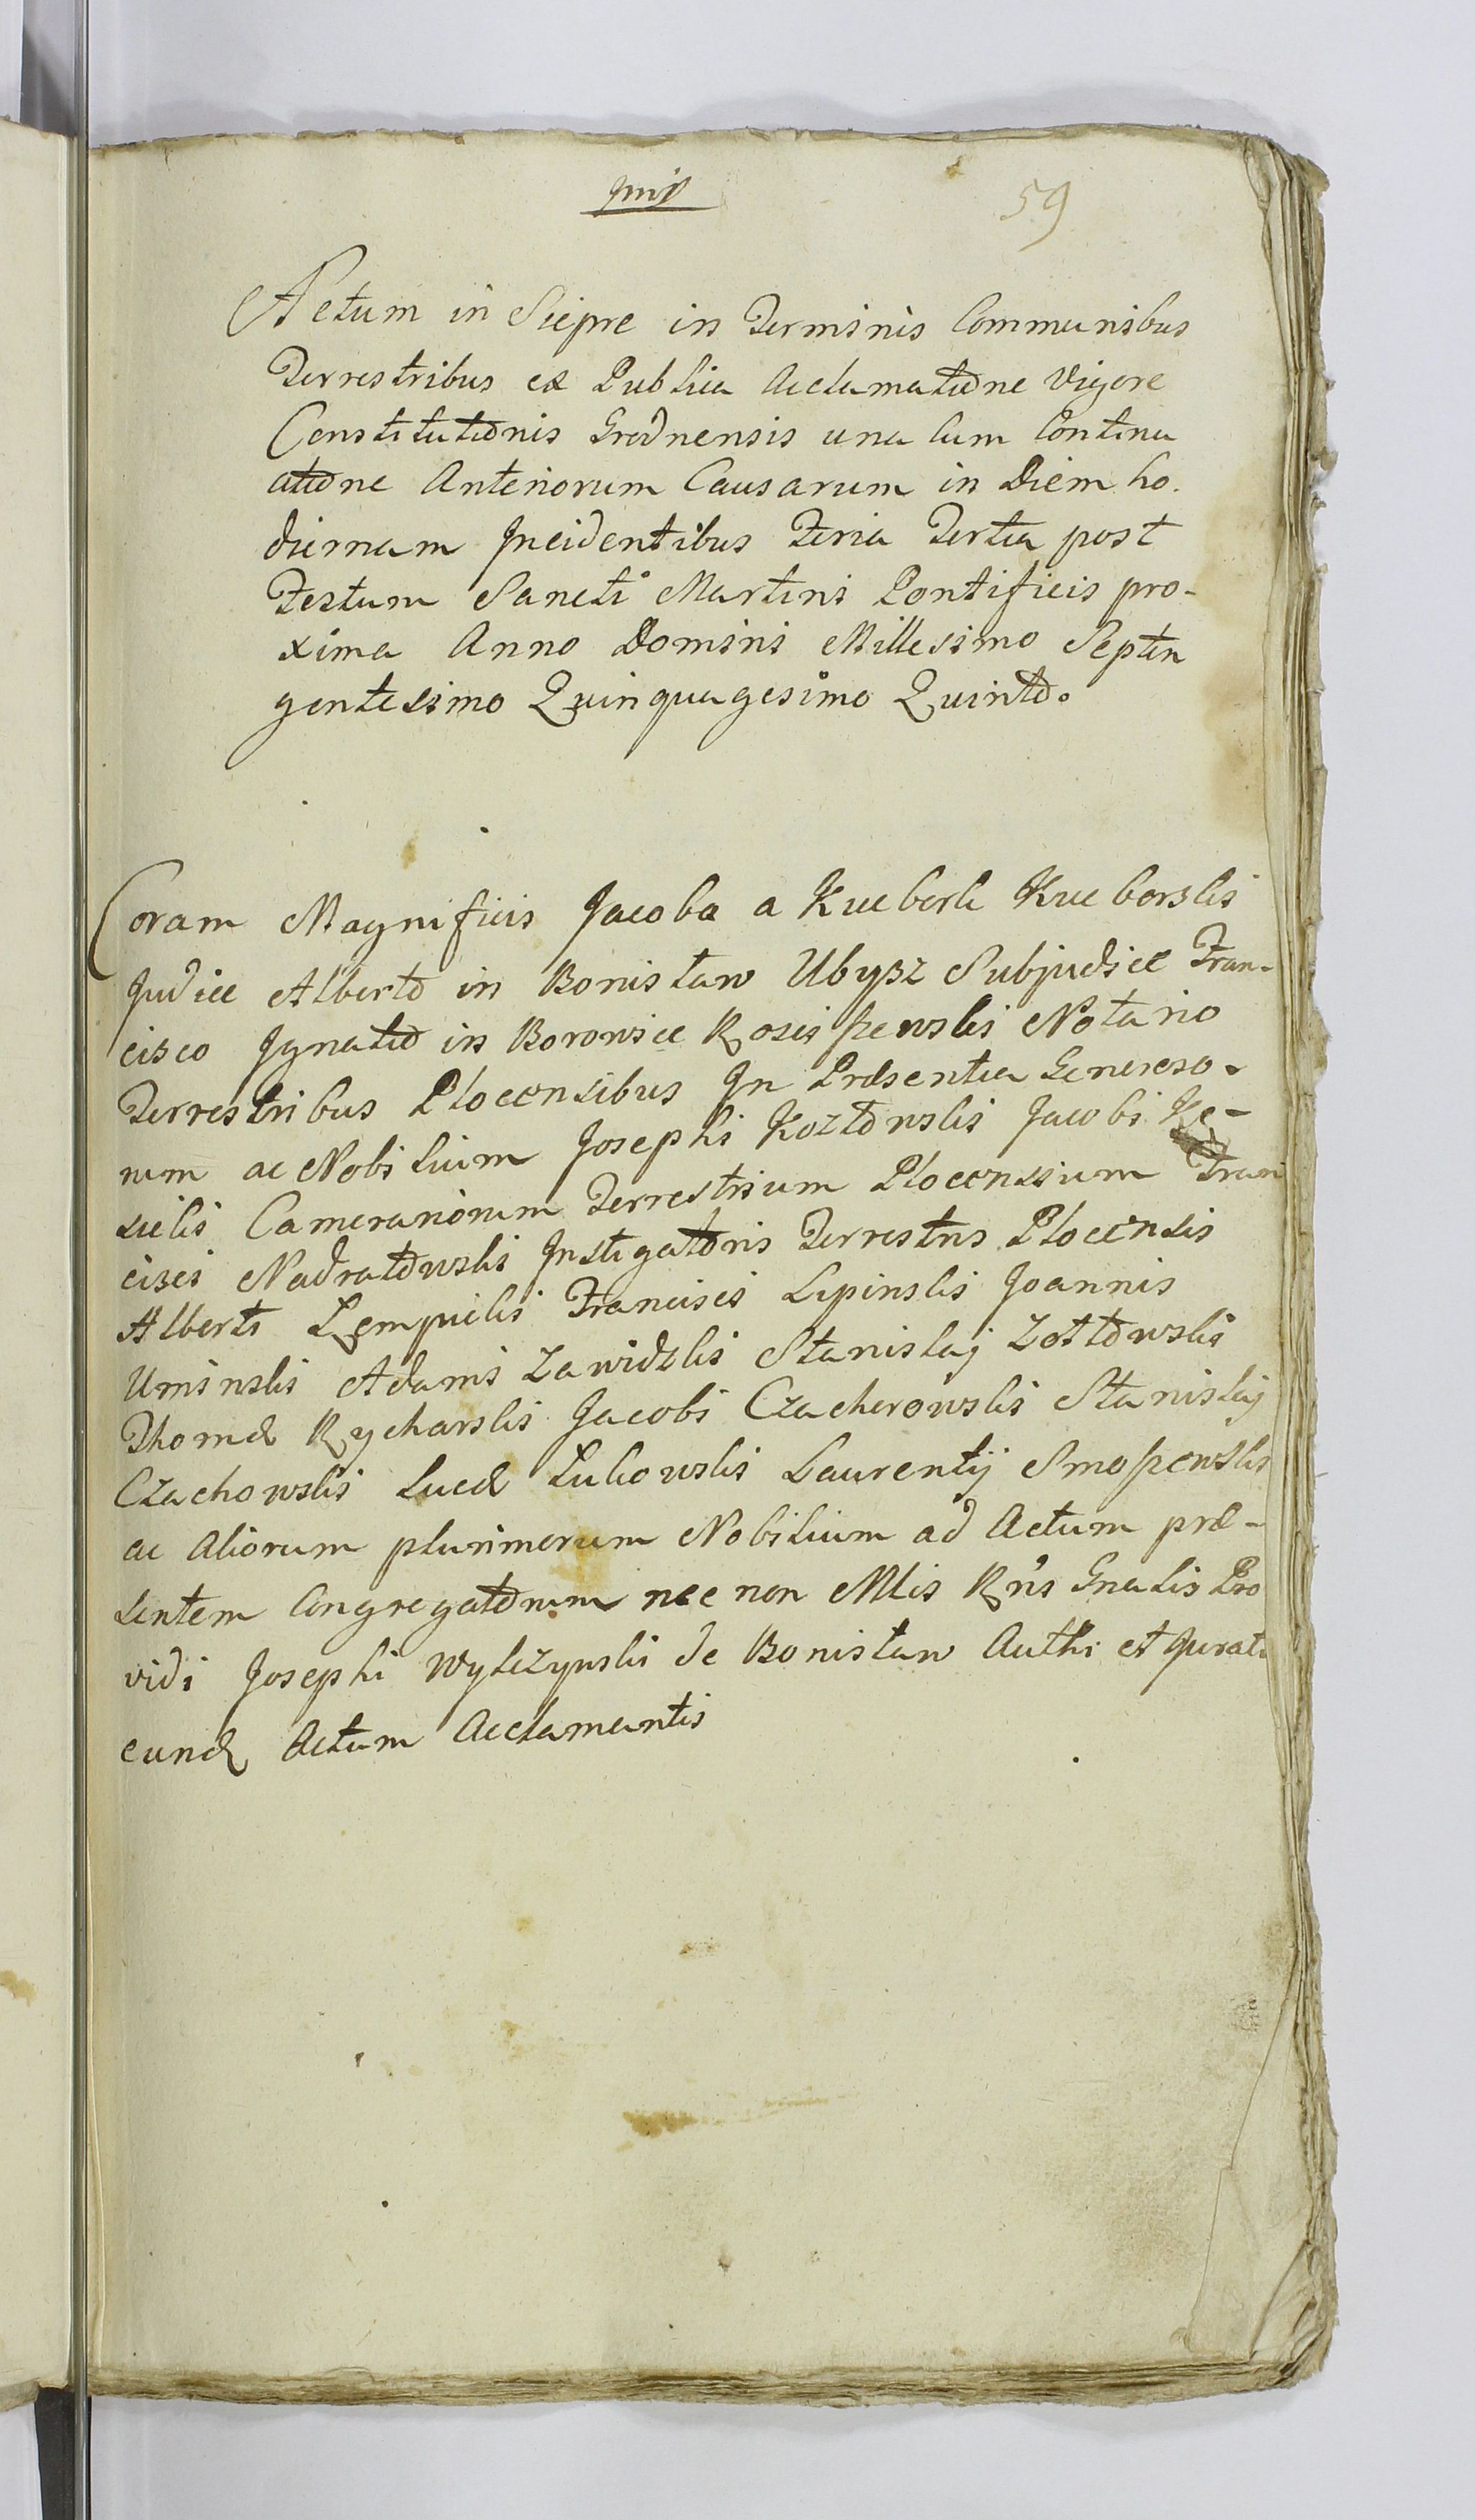 59
Actum in Siepre in Terminis Communibus
Terrestribus ex Publica Acclamatione Vigore
Constitutionis Grodnensis una Cum Continu
atione Anteriorum Causarum in Diem ho-
diernam Incidentibus Feria Tertia post
Festum Sancti Martini Pontificis pro-
xima Anno Domini Millesimo Septin
gentesimo Quinquagesimo Quinto.
Coram Magnificis Jacobo a Kucbork Kucborski
Judice Alberto in Bonisław Ubysz Subjudice Fran-
cisco Ignatio in Borowice Rosciszewski Notario
Terrestribus Plocensibus In Præsentia Generoso-
rum ac Nobilium Josephi Kozłowski Jacobi Kę-
sicki Camerariorum Terrestrium Plocensium Fran
cisci Nadratowski Instigatoris Terrestris Plocensis
Alberti Lempicki Francisci Lipinski Joannis
Uminski Adami Zawidzki Stanislaj Zołtowski
Thomæ Rycharski Jacobi Czacherowski Stanislaj
Czachowski Lucæ Lukowski Laurentij Smoszewski
ac Aliorum plurimorum Nobilium ad Actum præ-
sentem Congregatorum nec non Mlis Rni Gnalis Pro
vidi Josephi Wylizynski de Bonisław Authi et Jurati
eund Actum Acclamantis